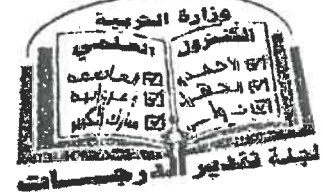 وزارة التربية
التنزول
العلمي
الأحمدي
الجهراء
حولي
العاصمة
مبارك الكبير
لجنة تقدير الدرجات